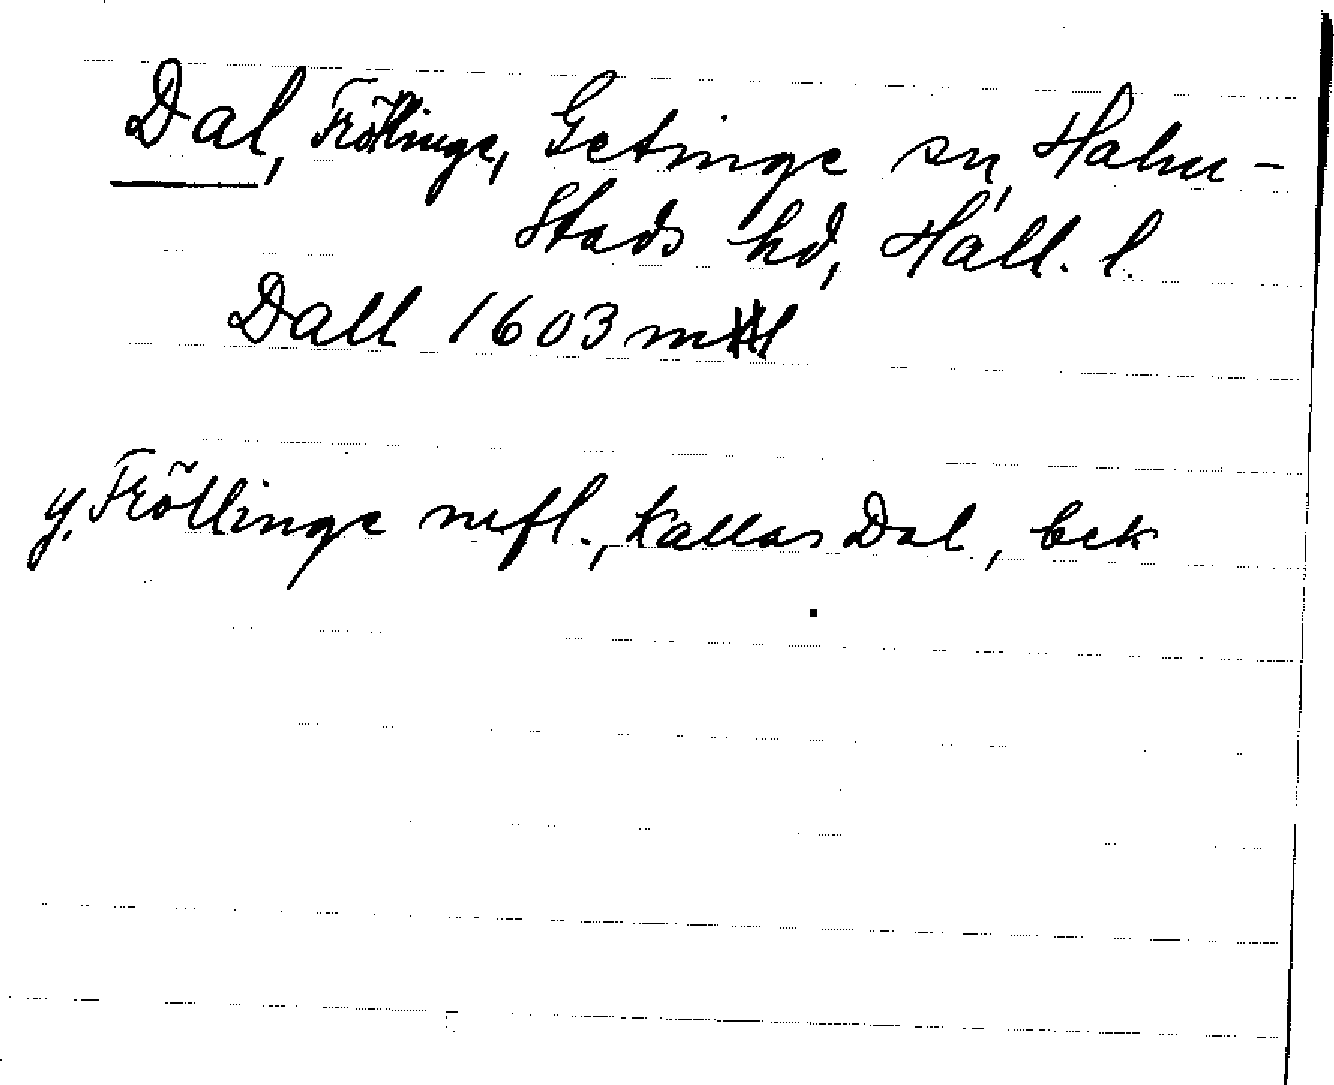 Dal, Fröllinge, Getinge sn, Halm-
stads hd, Hall. l.
Dall 1603 m
y. Fröllinge mfl., kallas Dal, bek